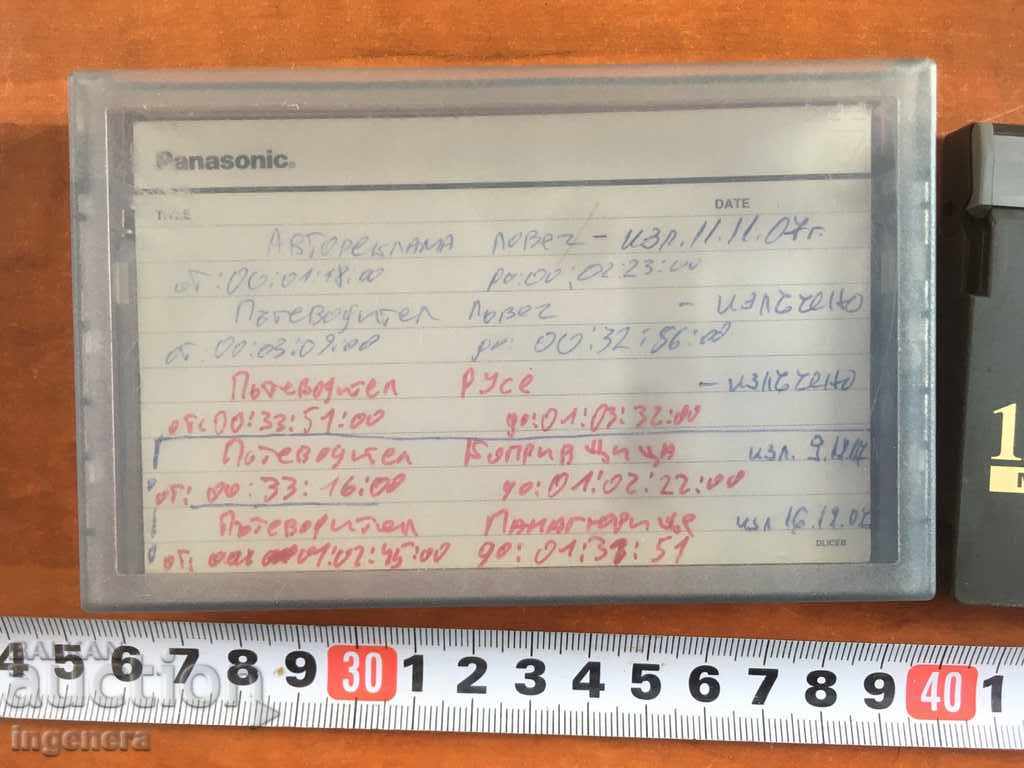 Panasonic
TITLE DATE
Автореклама Ловеч - изл. 11.11.07г.
от: 00:01:18:00 до: 00:02:23:00
Пътеводител Ловеч - излъчено
от 00:03:09:00 до: 00:32:56:00
Пътеводител Русе - излъчено
от: 00:33:51:00 до: 01:03:32:00
Пътеводител Копривщица изл. 9.12.07
от: 00:33:16:00 до: 01:02:22:00
Пътеводител Панагюрище изл 16.12.07
от: 01:02:45:00 до: 01:31:51
4 5 6 7 8 9 30 1 2 3 4 5 6 7 8 9 40 1
BALKAN
auction
ingenera